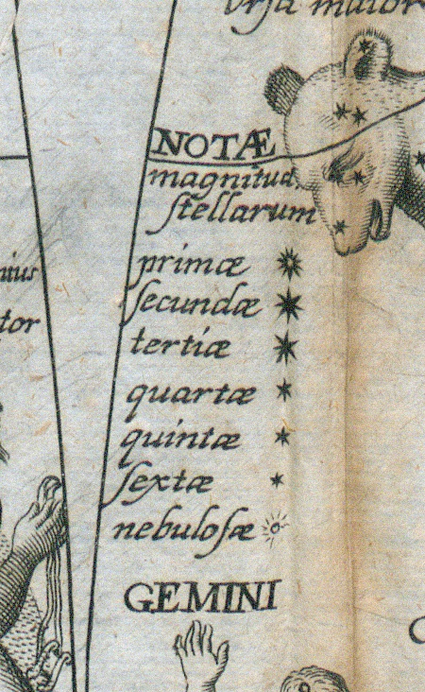 Ursa maior
NOTÆ
magnitud.
ſtellarum
primæ
ſecundæ
tertiæ
quartæ
quintæ
ſextæ
nebuloſæ
GEMINI